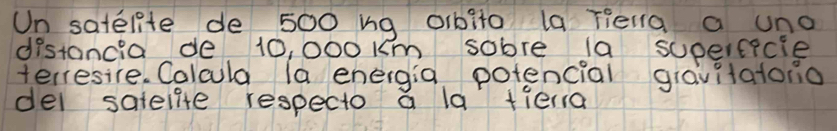 Un satélite de 500 kg orbita la Tierra a una
distancia de 10,000 Km sobre la superficie
terrestre. Calcula la energia potencial gravitatorio
del satelite respecto a la tierra